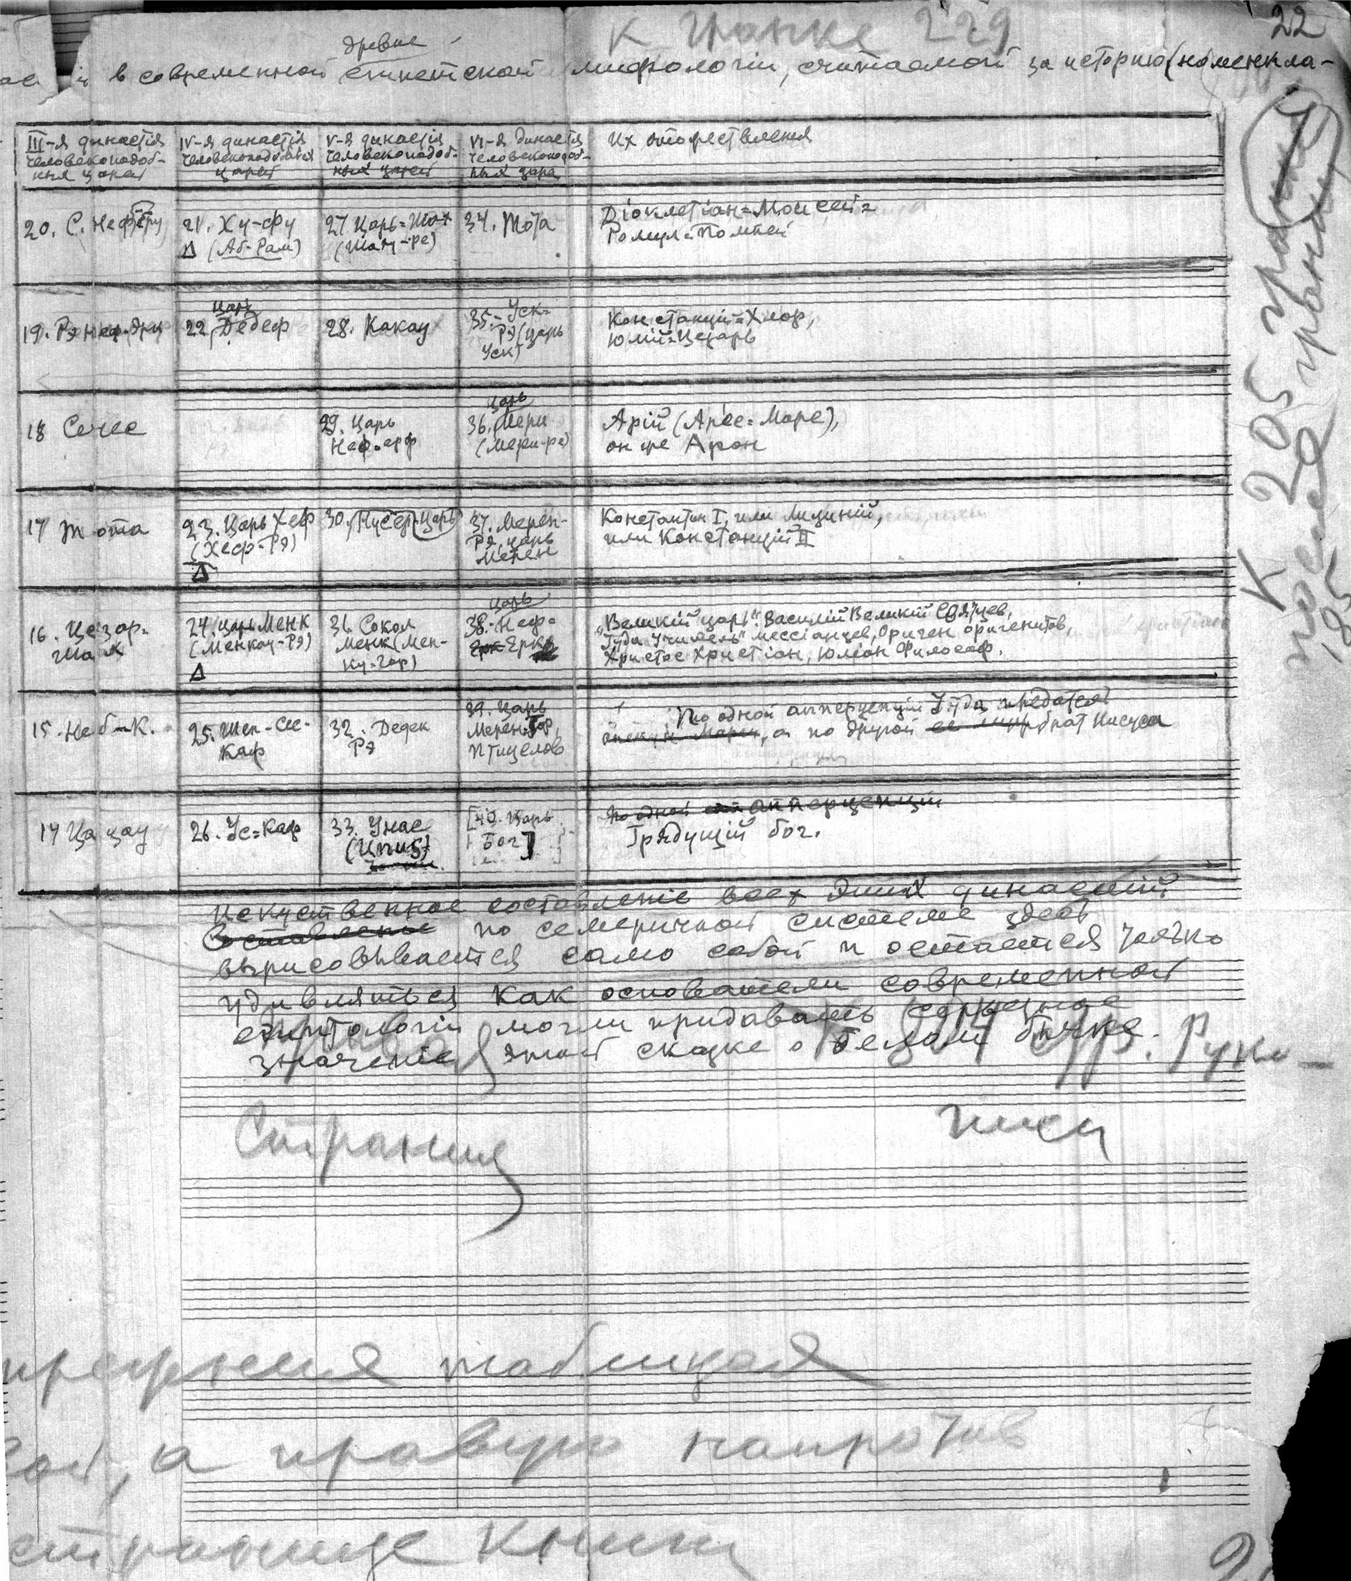 22
К гранке 229
древне
в современной египетской мифологіи, считаемой за исторію (номенкла-
III-я династія человекоподоб-ных царей
IV-я династія человекоподобных царей
V-я династія человекоподоб-ных царей
VI-я династія человекоподоб-ных царей
Их отожествления
20. С. Нефэру
21. Ху-фу
Δ (Аб-Рам)
27 Царь-Шах
(Шах-ре)
34. Тота
Діоклетіан=Моисей=
Ромул=Помпей
19. Рэ Неф-Эрк
царь
22. Дедеф
28. Какау
35. Уск-
Рэ (царь
Уск)
Констанцій=Хлор,
Юлій=Цезарь
18 Сечес
29. Царь
Неф-ерф
царь
36. Мери
(Мери-ре)
Арій (Арес=Марс),
он же Арон
17 Тота
23. Царь Хеф
(Хеф-Рэ)
Δ
30. Нусер-Царь
37. Мерен-
Рэ, царь
Мерен
Константин I, или Лициній,
или Констанцій II
16. Цезар-
шах
24. Царь Менк
(Менкау-Рэ)
Δ
31. Сокол
Менк (Мен-
ку-Гор)
царь
38. Неф-
Ерк
„Великій царь". Василій Великій
„Іуда Учитель" мессіанцев, Ориген оригенитов,
Христос христіан, Юліан Философ.
15. Неб-К.
25. Шеп-сес-
Каф
32. Дедек
Рэ
39. Царь
Мерен-Гор,
птицелов
По одной апперцепціи Іуда предатель
, а по другой брат Иисуса
14 Цацау
26. Ус=Каф
33. Унас
(Unas)
[40. Царь
Бог]
По одной апперцепціи
Грядущій бог.
Искуственное составленіе всех этих династій
по семеричной системе здесь
вырисовывается само собой и остается только
удивляться как основатели современной
египтологіи могли придавать серьезное
значеніе этой сказке о белом бычке.
К 204 стр. Руко-
писи
Страница
К 205 гранке
после гранки
185
прежняя таблица
, а правую напротив
странице книги